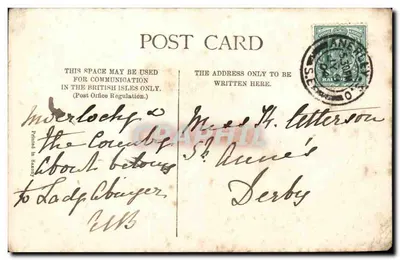 POST CARD
THIS SPACE MAY BE USED
FOR COMMUNICATION
IN THE BRITISH ISLES ONLY.
(Post Office Regulation.)
THE ADDRESS ONLY TO BE
WRITTEN HERE.
ANERLEY S.O.
S.E.
Inverlochy &
the Country
about belongs
to Lady Abinger
Miss K. Otterson
St. Anne's
Derby
Printed in Saxony